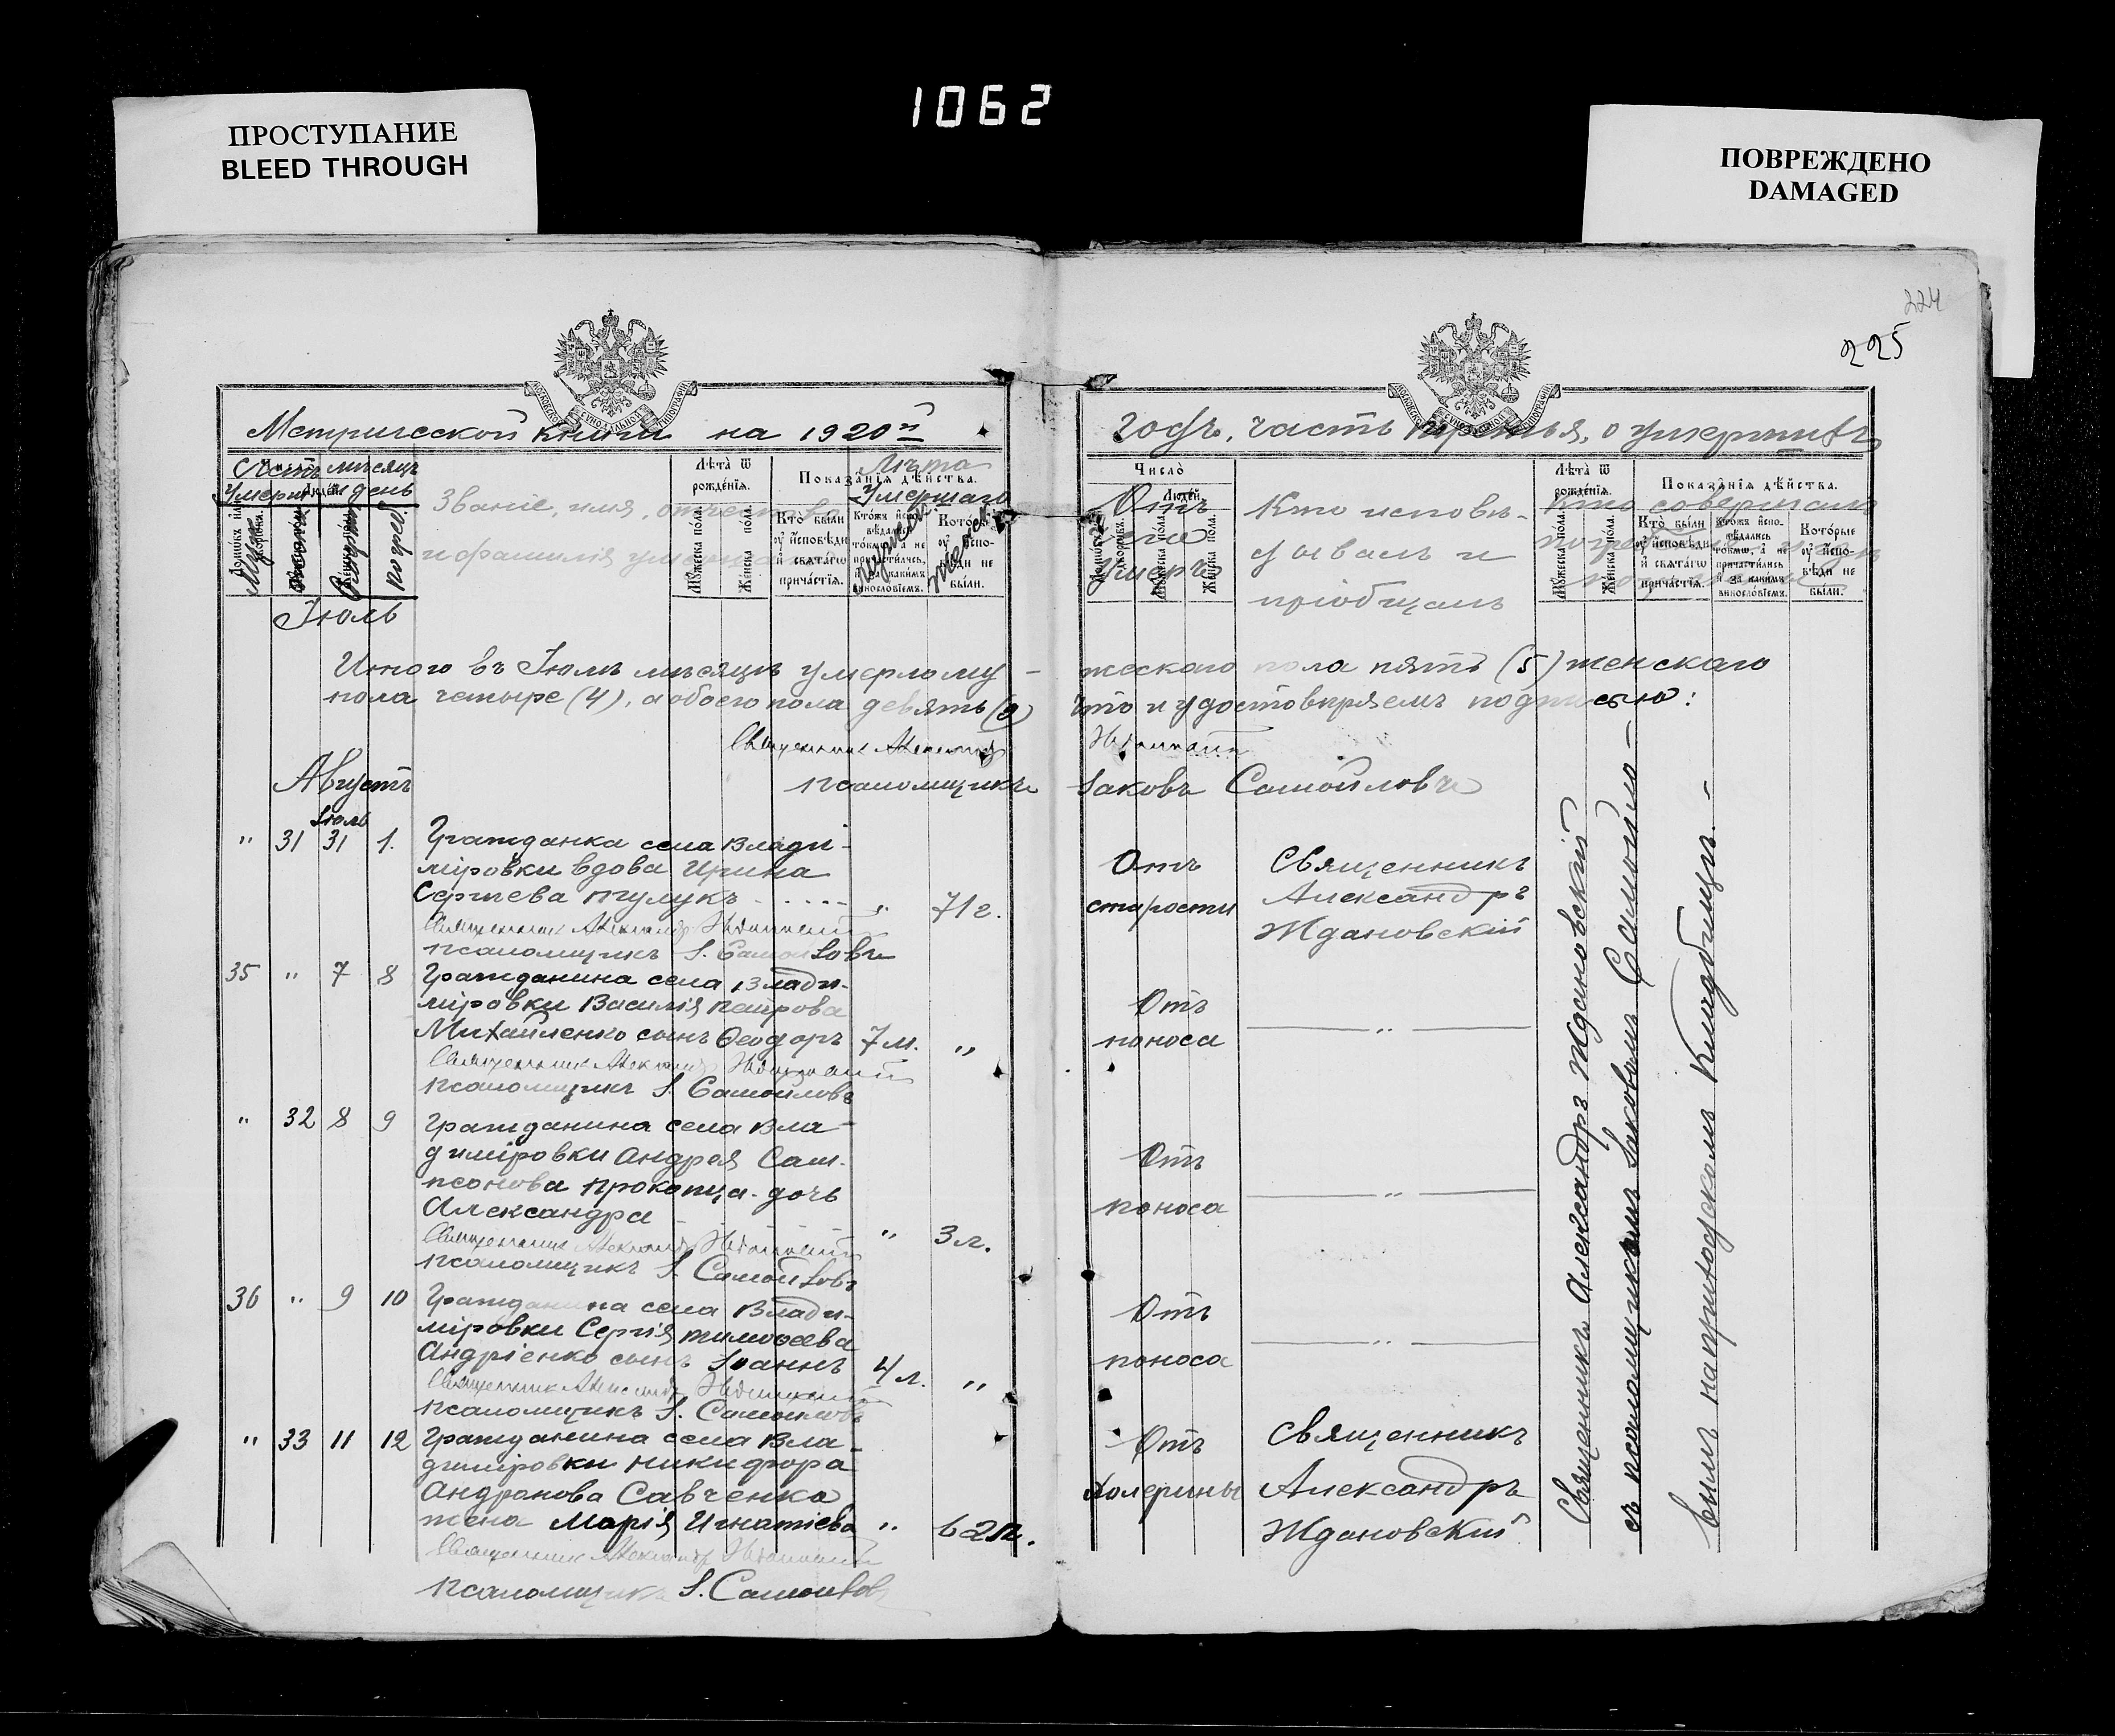 1062
ПРОСТУПАНИЕ
BLEED THROUGH
ПОВРЕЖДЕНО
DAMAGED
224
225
Метрической книги на 1920й
годъ, часть третья, о умершихъ
Счетъ мѣсяцъ
умерш. и день
Званіе, имя, отчество
и фамилія умершаго
Лѣта
умершаго
Лѣта ѿ рожденія.
Показанія дѣйства.
Число
Людей
Отъ
чего
умеръ
Кто исповѣ-
дывалъ и
пріобщалъ
Кто совершалъ
Іюль
Итого въ Іюлѣ мѣсяцѣ умерло му- жескаго пола пять (5) женскаго
пола четыре (4), а обоего пола девять (9) что и удостовѣряемъ подписью:
Священникъ Александръ Ждановскій
псаломщикъ Іаковъ Самойловъ
Августъ
Іюль
" 31 31 1. Гражданка села Влади-
міровки вдова Ирина
Сергіева " 71 г.
Отъ
старости
Священникъ
Александръ
Ждановскій
Священникъ Александръ Ждановскій
псаломщикъ І. Самойловъ
35 " 7 8 Гражданина села Влади-
міровки Василія Петрова
Михайленко сынъ Ѳеодоръ 7 м. "
Отъ
поноса
— " —
Священникъ Александръ Ждановскій
псаломщикъ І. Самойловъ
" 32 8 9 Гражданина села Вла-
диміровки Андрея Сам-
псонова Прокопца дочь
Александра " 3 л.
Отъ
поноса
— " —
Священникъ Александръ Ждановскій
псаломщикъ І. Самойловъ
36 " 9 10 Гражданина села Влади-
міровки Сергія Тимоѳеева
Андріенко сынъ Іоаннъ 4 л. "
Отъ
поноса
— " —
Священникъ Александръ Ждановскій
псаломщикъ І. Самойловъ
" 33 11 12 Гражданина села Вла-
диміровки Никифора
Андронова Савченко
жена Марія Игнатіева " 62 л.
Отъ
холерины
Священникъ
Александръ
Ждановскій
Священникъ Александръ Ждановскій
псаломщикъ І. Самойловъ
Священникъ Александръ Ждановскій
съ псаломщикомъ Іаковомъ Самойло-
вымъ на приходскомъ кладбищѣ.-